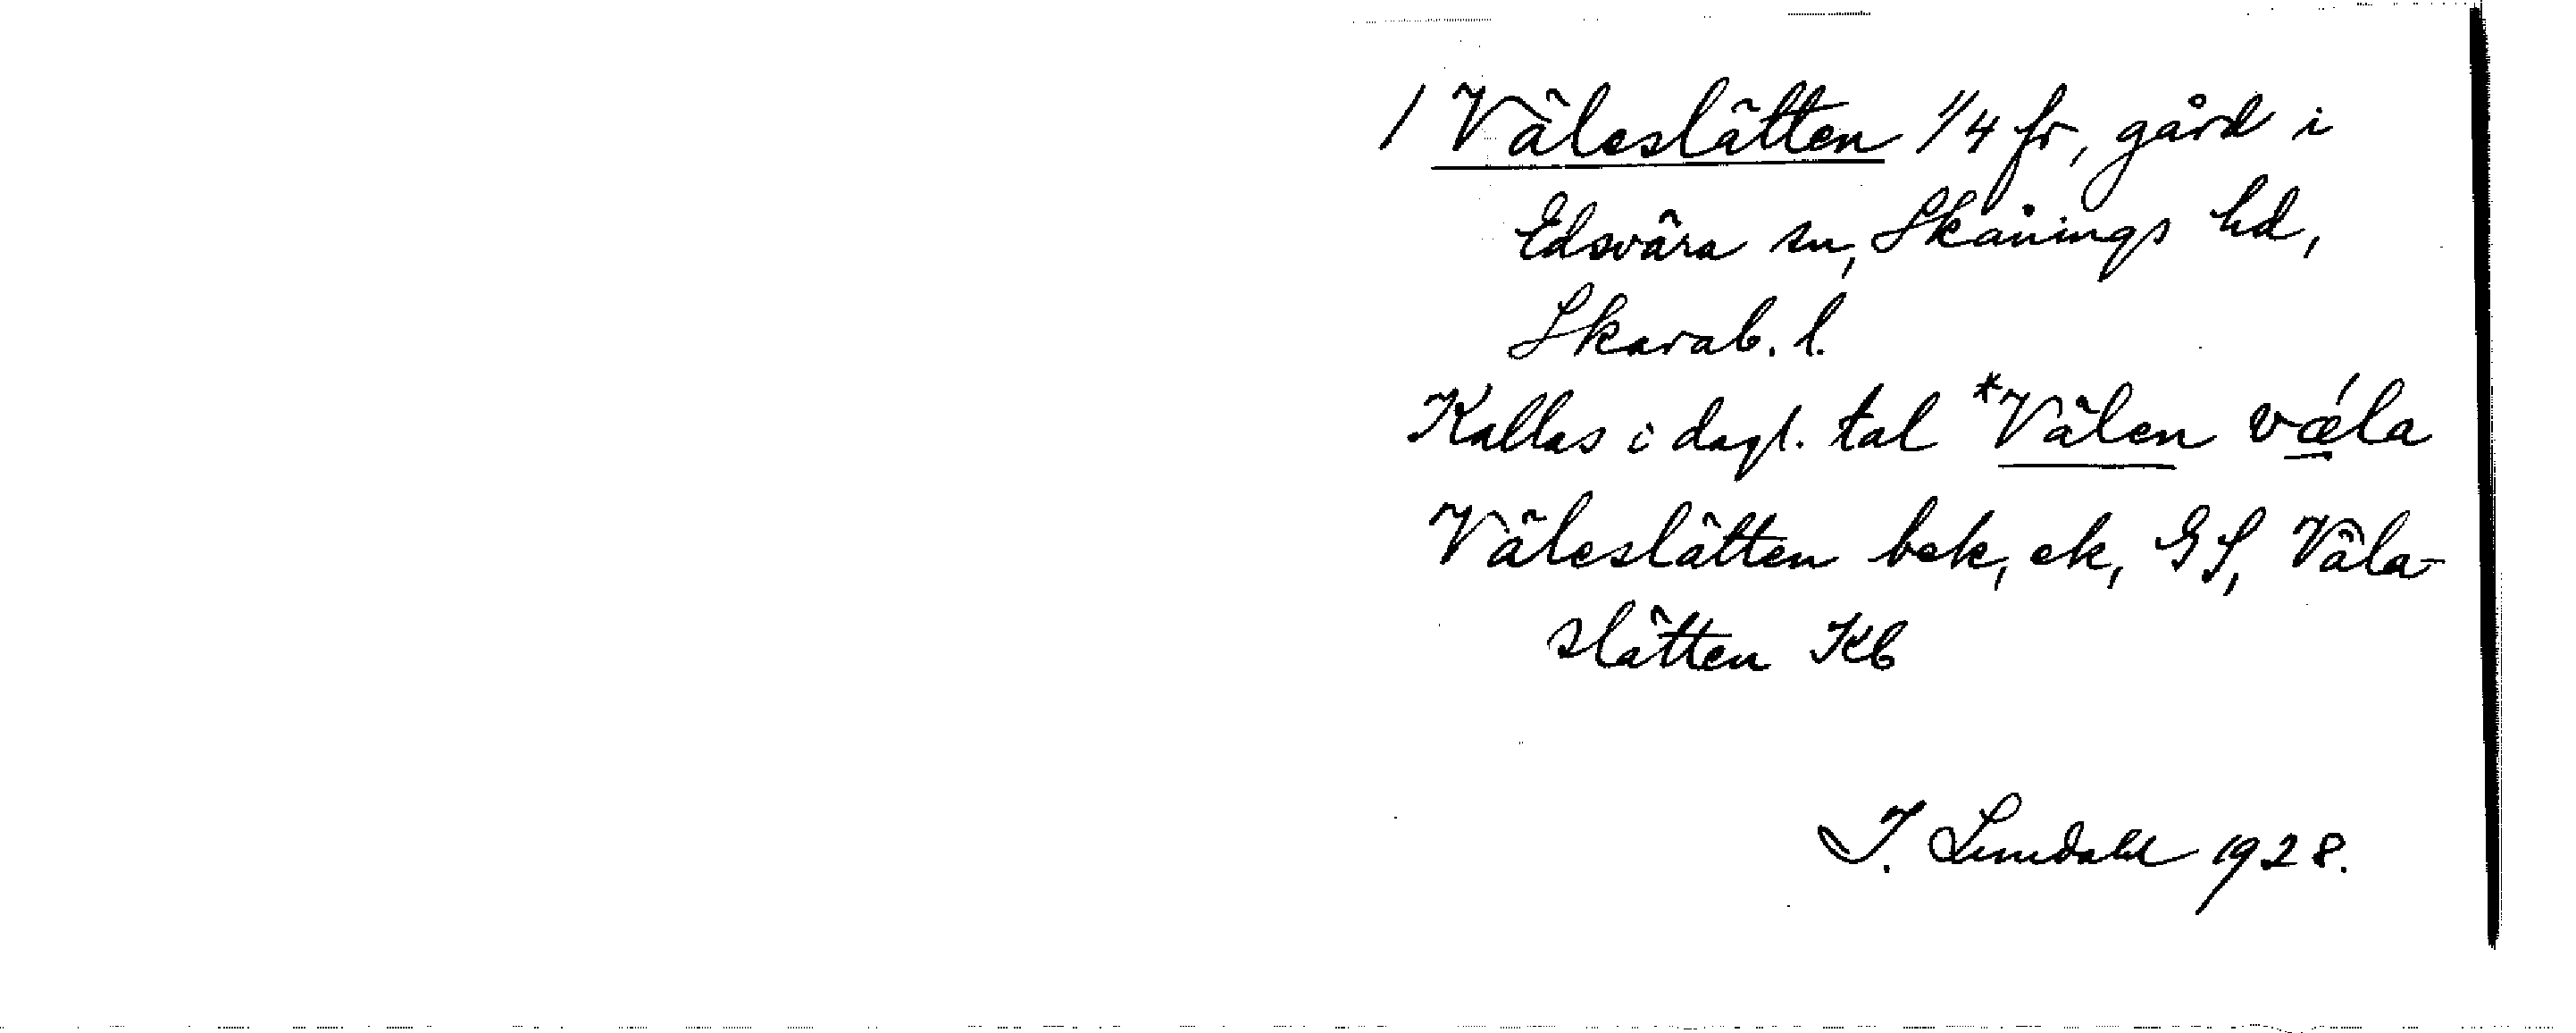 / Väleslätten 1/4 fr, gård i
Edsvära sn, Skånings hd,
Skarab. l.
Kallas i dagl. tal *Välen vǽla
Väleslätten bek, ek, GS, Väla-
slätten Kb
J. Lindahl 1928.